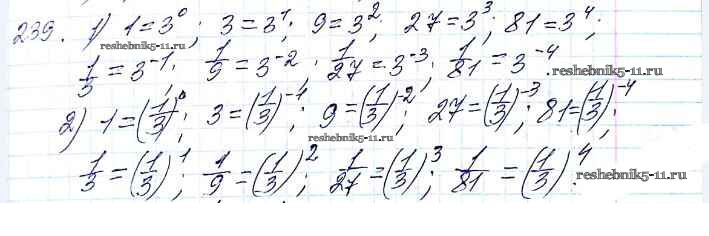 239. 1) 1=3⁰; 3=3¹; 9=3²; 27=3³; 81=3⁴;
reshebnik5-11.ru
1/3=3⁻¹; 1/9=3⁻²; 1/27=3⁻³; 1/81=3⁻⁴.
reshebnik5-11.ru
2) 1=(1/3)⁰; 3=(1/3)⁻¹; 9=(1/3)⁻²; 27=(1/3)⁻³; 81=(1/3)⁻⁴;
reshebnik5-11.ru
1/3=(1/3)¹; 1/9=(1/3)²; 1/27=(1/3)³; 1/81=(1/3)⁴.
reshebnik5-11.ru